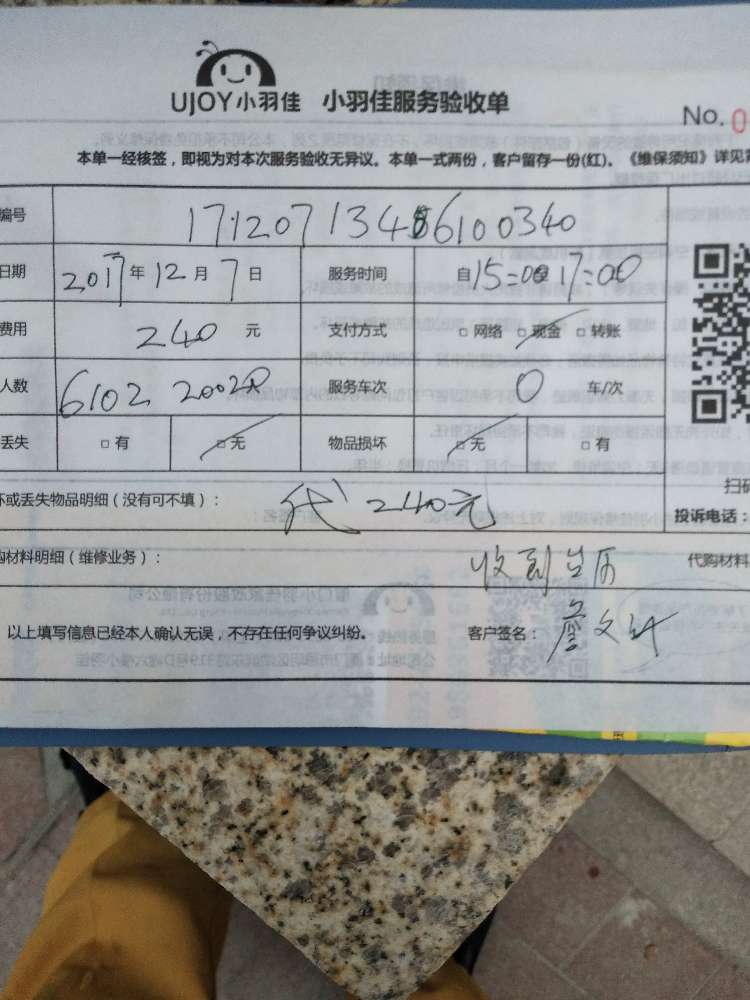 UJOY小羽佳 小羽佳服务验收单
No. 0
本单一经核签，即视为对本次服务验收无异议。本单一式两份，客户留存一份(红)。《维保须知》详见背
编号 17120713486100340
日期 2017年12月7日 服务时间 自15:00 17:00
费用 240 元 支付方式 □网络 □现金 □转账
人数 6102 服务车次 0 车/次
丢失 □有 □无 物品损坏 □无 □有
扫码
坏或丢失物品明细（没有可不填）： 代 240元 投诉电话：
购材料明细（维修业务）： 收到 代购材料
以上填写信息已经本人确认无误，不存在任何争议纠纷。 客户签名： 詹文